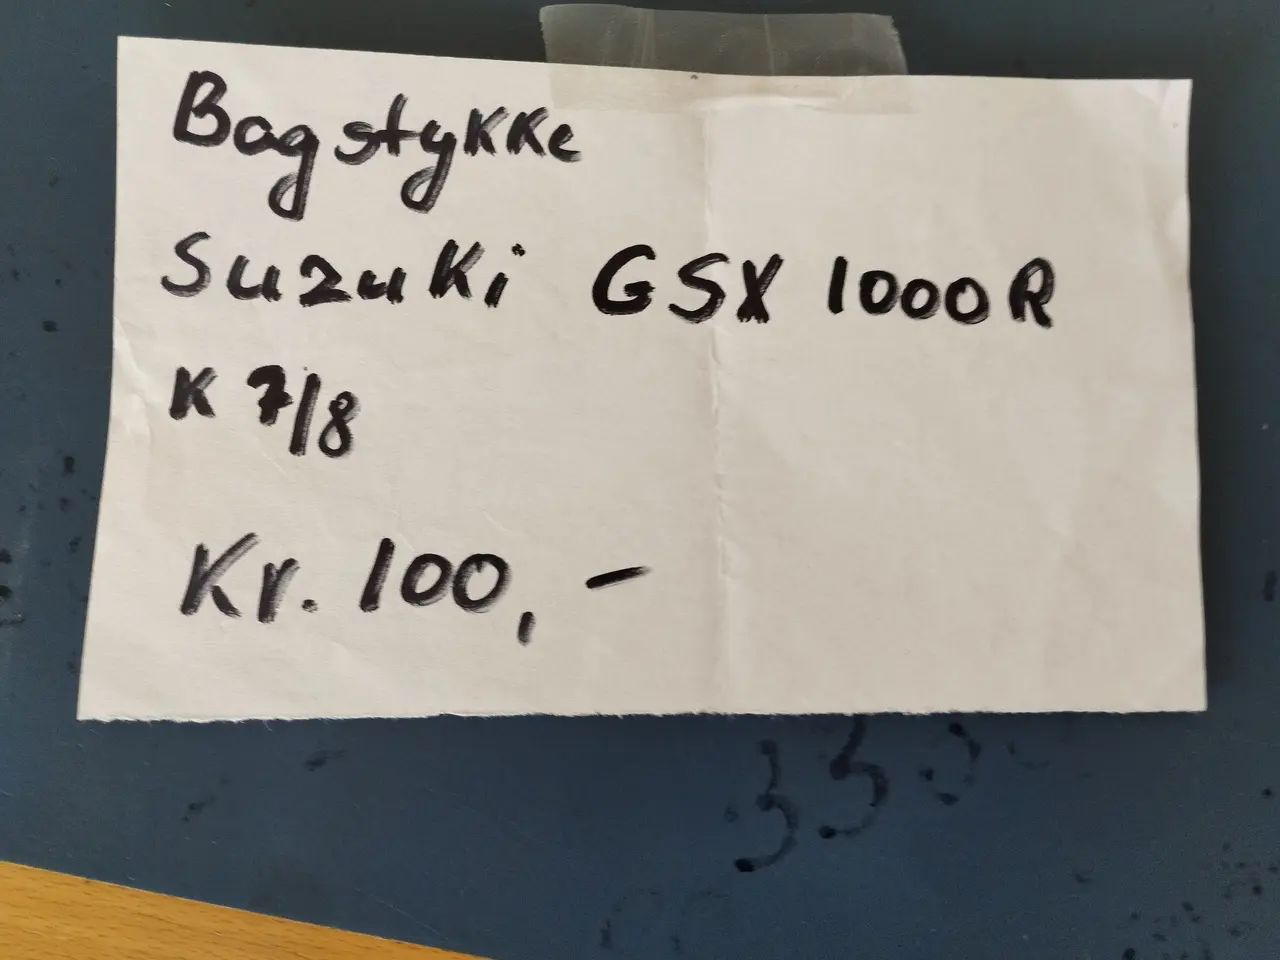 Bagstykke
Suzuki GSX 1000R
K 7/8
Kr. 100,-